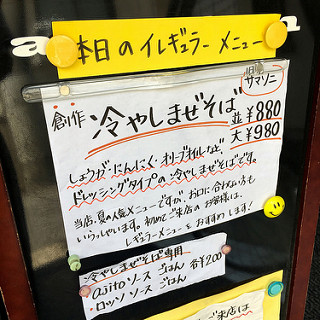 本日のイレギュラーメニュー
旧サマソニ
創作
冷やしまぜそば
並¥880
大¥980
しょうが・にんにく・オリーブオイルなど、
ドレッシングタイプの冷やしまぜそばです。
当店、夏の人気メニューですが、お口に合わない方も
いらっしゃいます。初めてご来店のお客様は、
レギュラーメニューをおすすめします!
冷やしまぜそば専用
ajitoソースごはん
・ロッソソースごはん
各¥200
ご来店は